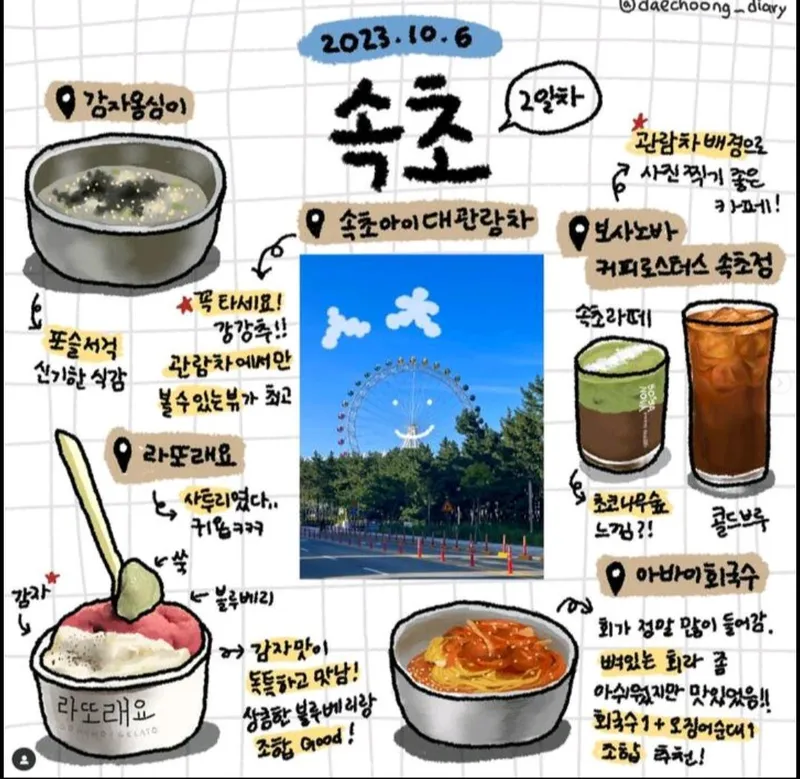 @daechoong_diary
2023.10.6
속초
2일차
감자옹심이
포슬서걱
신기한 식감
속초아이대관람차
꼭 타세요!
강강추!!
관람차에서만
볼 수 있는 뷰가 최고
관람차 배경으로
사진 찍기 좋은
카페!
보사노바
커피로스터스 속초점
속초라떼
BOSSA
NOVA
초코나무숲
느낌?!
콜드브루
라또래요
사투리였다..
귀욥ㅋㅋㅋ
쑥
블루베리
감자
라또래요
GELATO
감자맛이
독특하고 맛남!
상큼한 블루베리랑
조합 Good!
아바이회국수
회가 정말 많이 들어감.
뼈있는 회라 좀
아쉬웠지만 맛있었음!!
회국수1 + 오징어순대1
조합 추천!